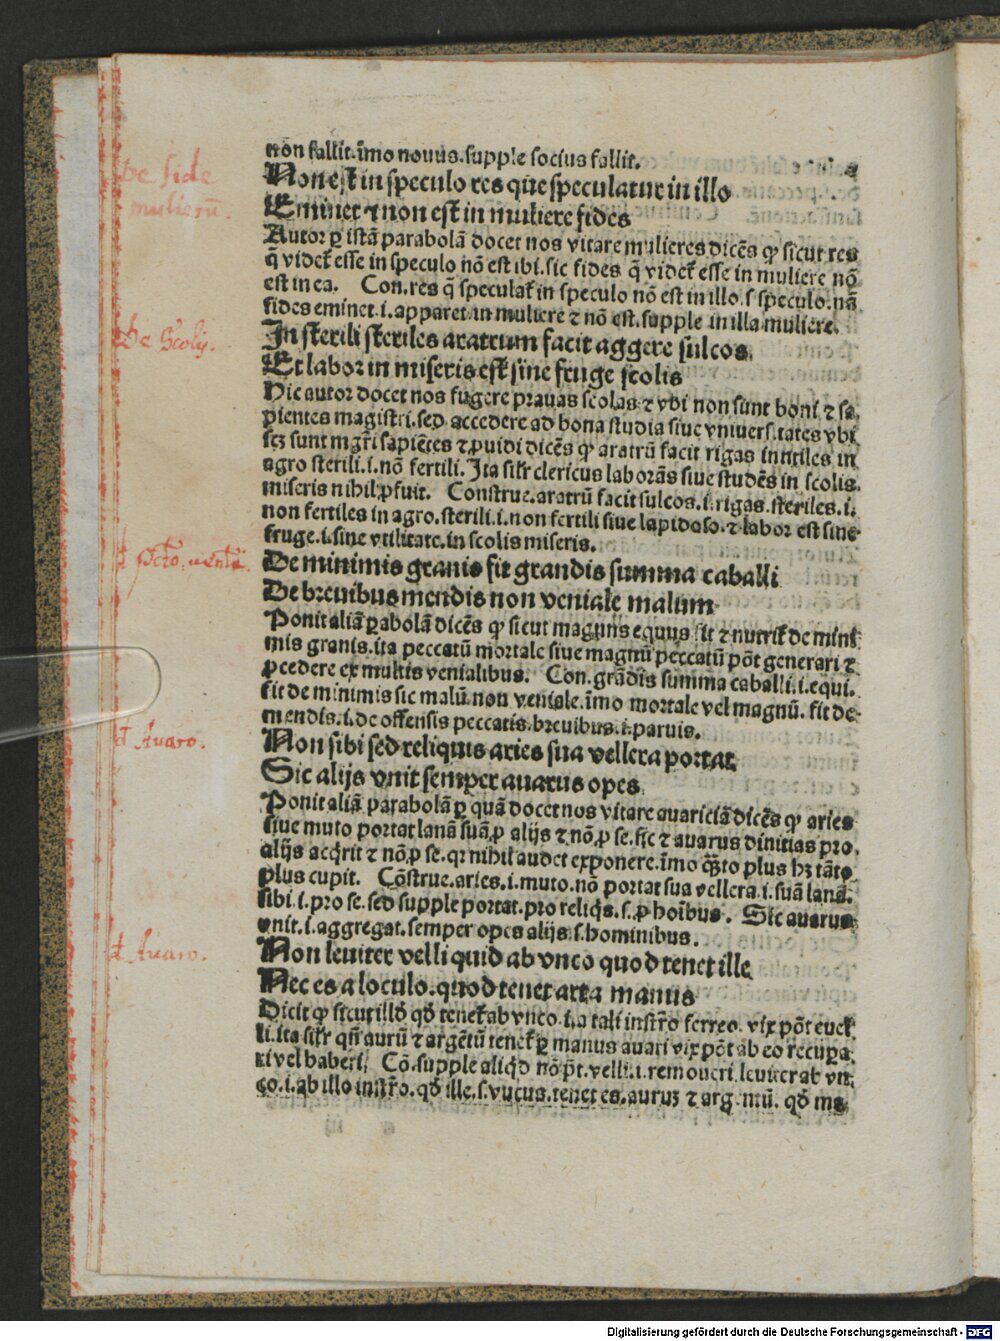 non fallit.īmo nouus.supple socius fallit.
De fide
mulierū.
Non est in speculo res que speculatur in illo
Eminet ⁊ non est in muliere fides
Autor ꝑ istā parabolā docet nos vitare mulieres dicēs ꝙ sicut res
q̄ videt᷑ esse in speculo nō est ibi.sic fides q̄ videt᷑ esse in muliere nō
est in ea. Con.res q̄ speculat᷑ in speculo nō est in illo.s speculo.nā
fides eminet.i.apparet in muliere ⁊ nō est.supple in illa muliere.
De Scolis.
In sterili steriles aratrum facit aggere sulcos.
Et labor in miseris est sine fruge scolis
Hic autor docet nos fugere prauas scolas ⁊ vbi non sunt boni ⁊ sa
pientes magistri.sed accedere ad bona studia siue vniuersitates vbi
scꝫ sunt mgr̄i sapiētes ⁊ ꝓuidi dicēs ꝙ aratrū facit rigas inutiles in
agro sterili.i.nō fertili.Ita silr̄ clericus laborās siue studēs in scolis
miseris nihil ꝓfuit. Construe.aratrū facit sulcos.i.rigas.steriles.i.
non fertiles in agro.sterili.i.non fertili siue lapidoso.⁊ labor est sine
fruge.i.sine vtilitate.in scolis miseris.
De minimis granis fit grandis summa caballi
De breuibus mendis non veniale malum
Ponit aliā ꝑabolā dicēs ꝙ sicut magnus equus fit ⁊ nutrit᷑ de mini
mis granis.ita peccatū mortale siue magnū peccatū pōt generari ⁊
ꝓcedere ex multis venialibus. Con.grādis summa caballi.i.equi.
fit de minimis sic malū.non veniale.īmo mortale vel magnū.fit de
mendis.i.de offensis peccatis.breuibus.i.paruis.
đ Auaro.
Non sibi sed reliquis aries sua vellera portat
Sic alijs vnit semper auarus opes
Ponit aliā parabolā ꝑ quā docet nos vitare auariciā dicēs ꝙ aries
siue muto portat lanā suā ꝓ alijs ⁊ nō ꝓ se.sic ⁊ auarus diuitias pro
alijs acq̄rit ⁊ nō ꝓ se.qꝛ nihil audet exponere.īmo q̄ꝫto plus hꝫ tāto
plus cupit. Cōstrue.aries.i.muto.nō portat sua vellera.i.suā lanā.
sibi.i.pro se.sed supple portat.pro reliq̄s.s.ꝓ hoībus. Sic auarus
vnit.i.aggregat.semper opes alijs.s.hominibus.
đ Auaro.
Non leuiter velli quid ab vnco quod tenet ille
Nec es a loculo.quod tenet arta manus
Dicit ꝙ sicut illđ qđ tenet᷑ ab vnco.i.a tali instr̄o ferreo.vix pōt euel
li.ita silr̄ qn̄ aurū ⁊ argētū tenet᷑ ꝑ manus auari vix pōt ab eo recupa
ri vel haberi. Cō.supple aliq̄d nō pt̄.velli.i.remoueri.leuiter ab vn
co.i.ab illo instr̄o.qđ ille.s.vncus.tenet es.aurum ⁊ argentū.qđ ma
Digitalisierung gefördert durch die Deutsche Forschungsgemeinschaft - DFG